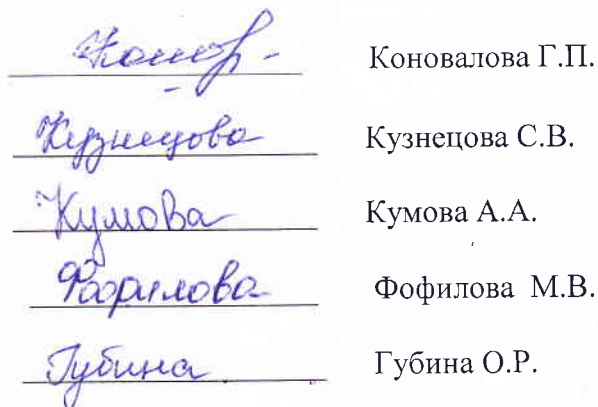 Коновалова Г.П.
Кузнецова Кузнецова С.В.
Кумова Кумова А.А.
Фофилова Фофилова М.В.
Губина Губина О.Р.